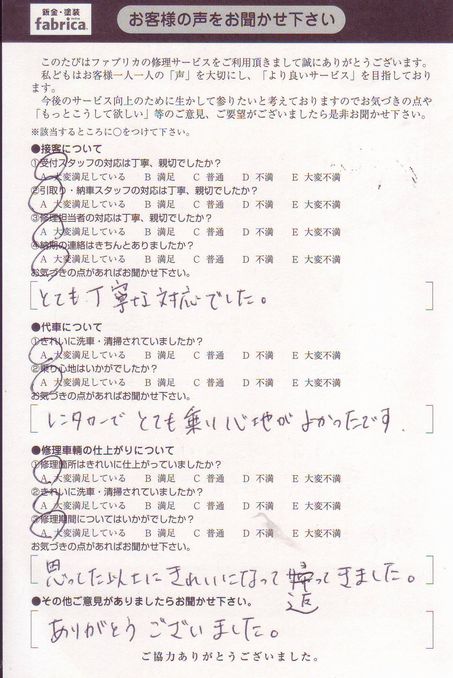 鈑金・塗装
fabrica.
お客様の声をお聞かせ下さい
このたびはファブリカの修理サービスをご利用頂きまして誠にありがとうございます。
私どもはお客様一人一人の「声」を大切にし、「より良いサービス」を目指しており
ます。
今後のサービス向上のために生かして参りたいと考えておりますのでお気づきの点や
「もっとこうして欲しい」等のご意見、ご要望がございましたら是非お聞かせ下さい。
※該当するところに○をつけて下さい。
●接客について
①受付スタッフの対応は丁寧、親切でしたか？
A 大変満足している B 満足 C 普通 D 不満 E 大変不満
②引取り・納車スタッフの対応は丁寧、親切でしたか？
A 大変満足している B 満足 C 普通 D 不満 E 大変不満
③修理担当者の対応は丁寧、親切でしたか？
A 大変満足している B 満足 C 普通 D 不満 E 大変不満
④納期の連絡はきちんとありましたか？
A 大変満足している B 満足 C 普通 D 不満 E 大変不満
お気づきの点があればお聞かせ下さい。
とても丁寧な対応でした。
●代車について
①きれいに洗車・清掃されていましたか？
A 大変満足している B 満足 C 普通 D 不満 E 大変不満
②乗り心地はいかがでしたか？
A 大変満足している B 満足 C 普通 D 不満 E 大変不満
お気づきの点があればお聞かせ下さい。
レンタカーでとても乗り心地がよかったです.
●修理車輌の仕上がりについて
①修理箇所はきれいに仕上がっていましたか？
A 大変満足している B 満足 C 普通 D 不満 E 大変不満
②きれいに洗車・清掃されていましたか？
A 大変満足している B 満足 C 普通 D 不満 E 大変不満
③修理期間についてはいかがでしたか？
A 大変満足している B 満足 C 普通 D 不満 E 大変不満
お気づきの点があればお聞かせ下さい。
思った以上にきれいになって帰ってきました。
返
●その他ご意見がありましたらお聞かせ下さい。
ありがとうございました。
ご協力ありがとうございました。